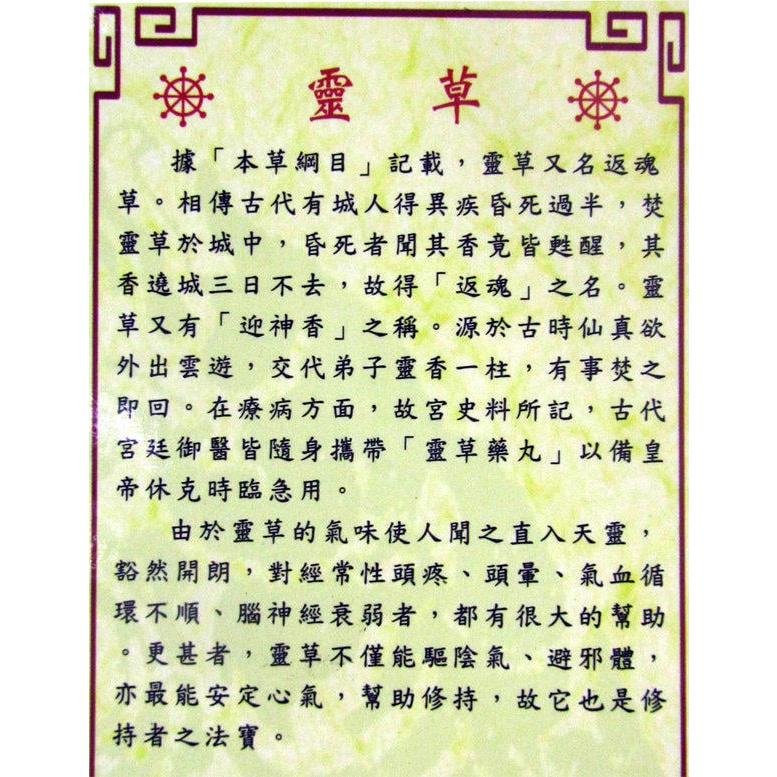 靈草
據「本草綱目」記載，靈草又名返魂
草。相傳古代有城人得異疾昏死過半，焚
靈草於城中，昏死者聞其香竟皆甦醒，其
香遶城三日不去，故得「返魂」之名。靈
草又有「迎神香」之稱。源於古時仙真欲
外出雲遊，交代弟子靈香一柱，有事焚之
即回。在療病方面，故宮史料所記，古代
宮廷御醫皆隨身攜帶「靈草藥丸」以備皇
帝休克時臨急用。
由於靈草的氣味使人聞之直入天靈，
豁然開朗，對經常性頭疼、頭暈、氣血循
環不順、腦神經衰弱者，都有很大的幫助
。更甚者，靈草不僅能驅陰氣、避邪體，
亦最能安定心氣，幫助修持，故它也是修
持者之法寶。